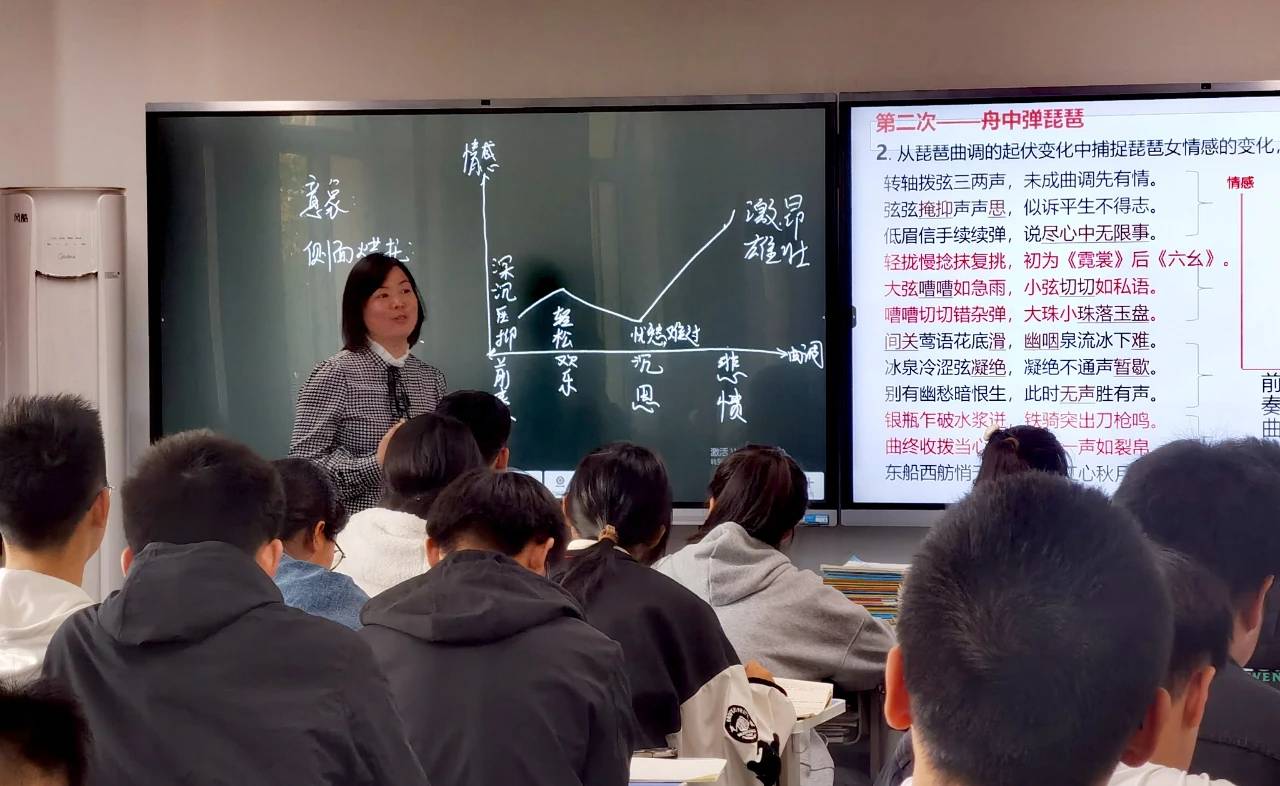 风酷
Midea
意象:
侧面烘托:
情感
深沉压抑
前奏
轻松
欢乐
忧愁难过
沉恩
悲愤
激昂
雄壮
曲调
激活
第二次——舟中弹琵琶
2. 从琵琶曲调的起伏变化中捕捉琵琶女情感的变化,
转轴拨弦三两声，未成曲调先有情。
弦弦掩抑声声思，似诉平生不得志。
低眉信手续续弹，说尽心中无限事。
轻拢慢捻抹复挑，初为《霓裳》后《六幺》。
大弦嘈嘈如急雨，小弦切切如私语。
嘈嘈切切错杂弹，大珠小珠落玉盘。
间关莺语花底滑，幽咽泉流冰下难。
冰泉冷涩弦凝绝，凝绝不通声暂歇。
别有幽愁暗恨生，此时无声胜有声。
银瓶乍破水浆迸，铁骑突出刀枪鸣。
曲终收拨当心 一声如裂帛
东船西舫悄 江心秋月
情感
前奏曲
WEN